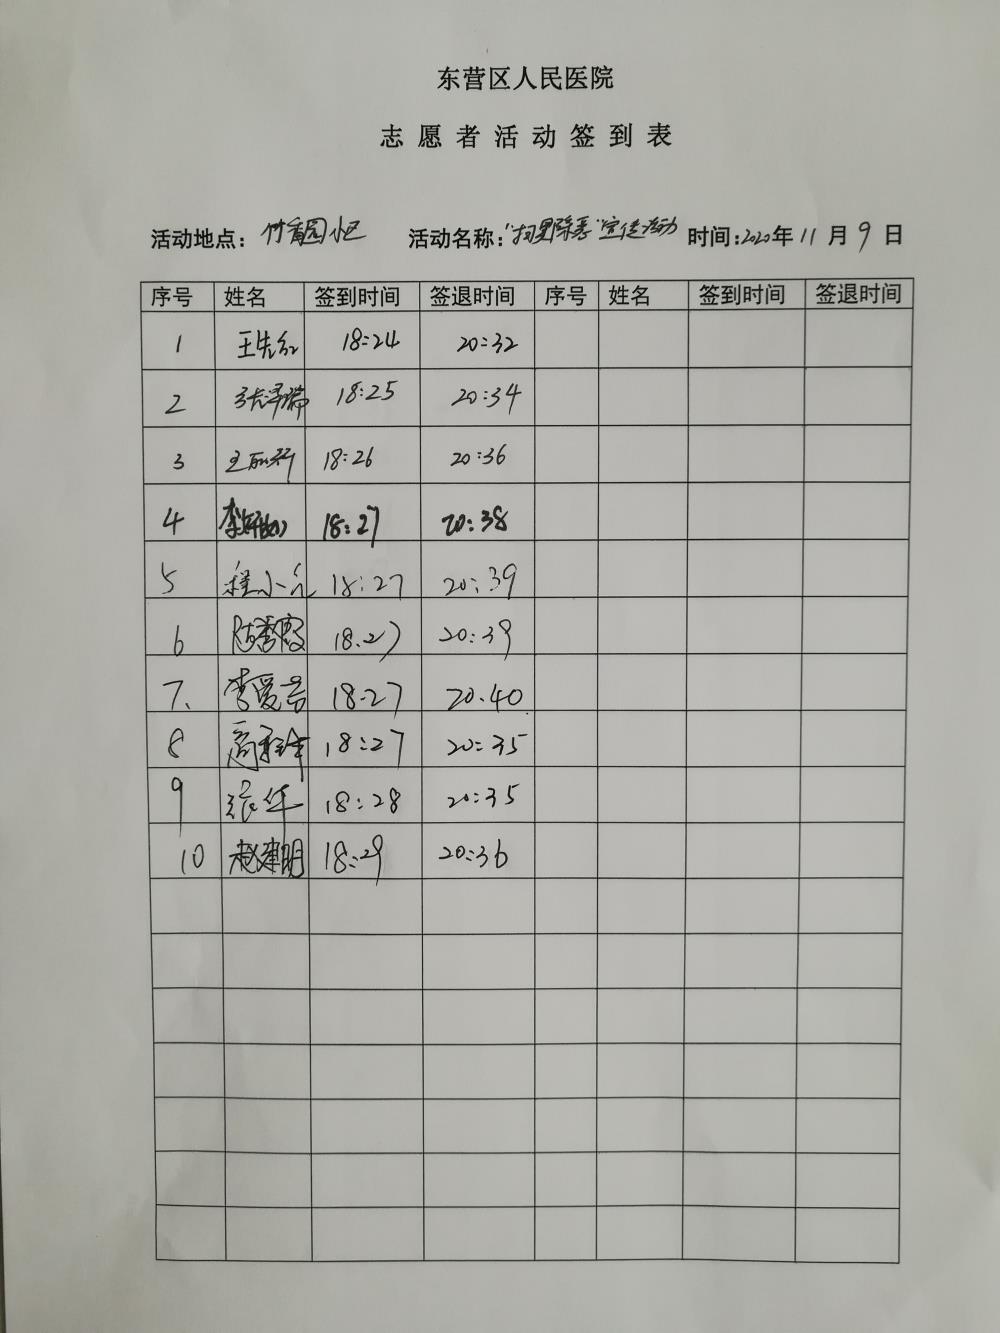 东营区人民医院
志愿者活动签到表
活动地点：竹香园小区 活动名称：“扫黑除恶”宣传活动 时间：2020年11月9日
序号 姓名 签到时间 签退时间 序号 姓名 签到时间 签退时间
1 王先红 18:24 20:32
2 张泽瑞 18:25 20:34
3 王丽 18:26 20:36
4 李 18:27 20:38
5 程小 18:27 20:39
6 陈秀霞 18:27 20:39
7、 李爱芸 18:27 20:40
8 高 18:27 20:35
9 张华 18:28 20:35
10 赵建明 18:29 20:36